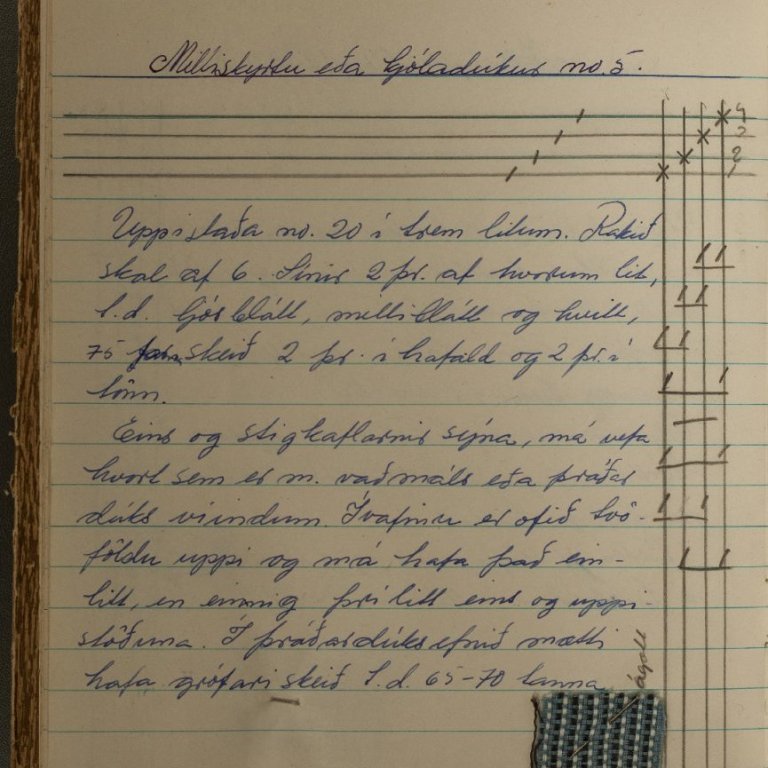 Milliskyrtu eða kjóladúkur no. 5.
4
3
2
1
Uppistaða no. 20 í trem litum. Rakið
skal af 6. Sínir 2 þr. af hvorum lit,
t.d. ljósblátt, milliblátt og hvítt,
75 skeið 2 þr. í hafald og 2 þr. í
tönn.
Eins og stigkaflarnir sýna, má vefa
hvort sem er m. vaðmáls eða þráðar
dúks vindum. Ívafinu er ofið tvö-
földu uppi og má hafa það ein-
litt, en einnig þrílitt eins og uppi-
stöðuna. Í þráðardúksefnið mætti
hafa grófari skeið t.d. 65-70 tanna
ágætt